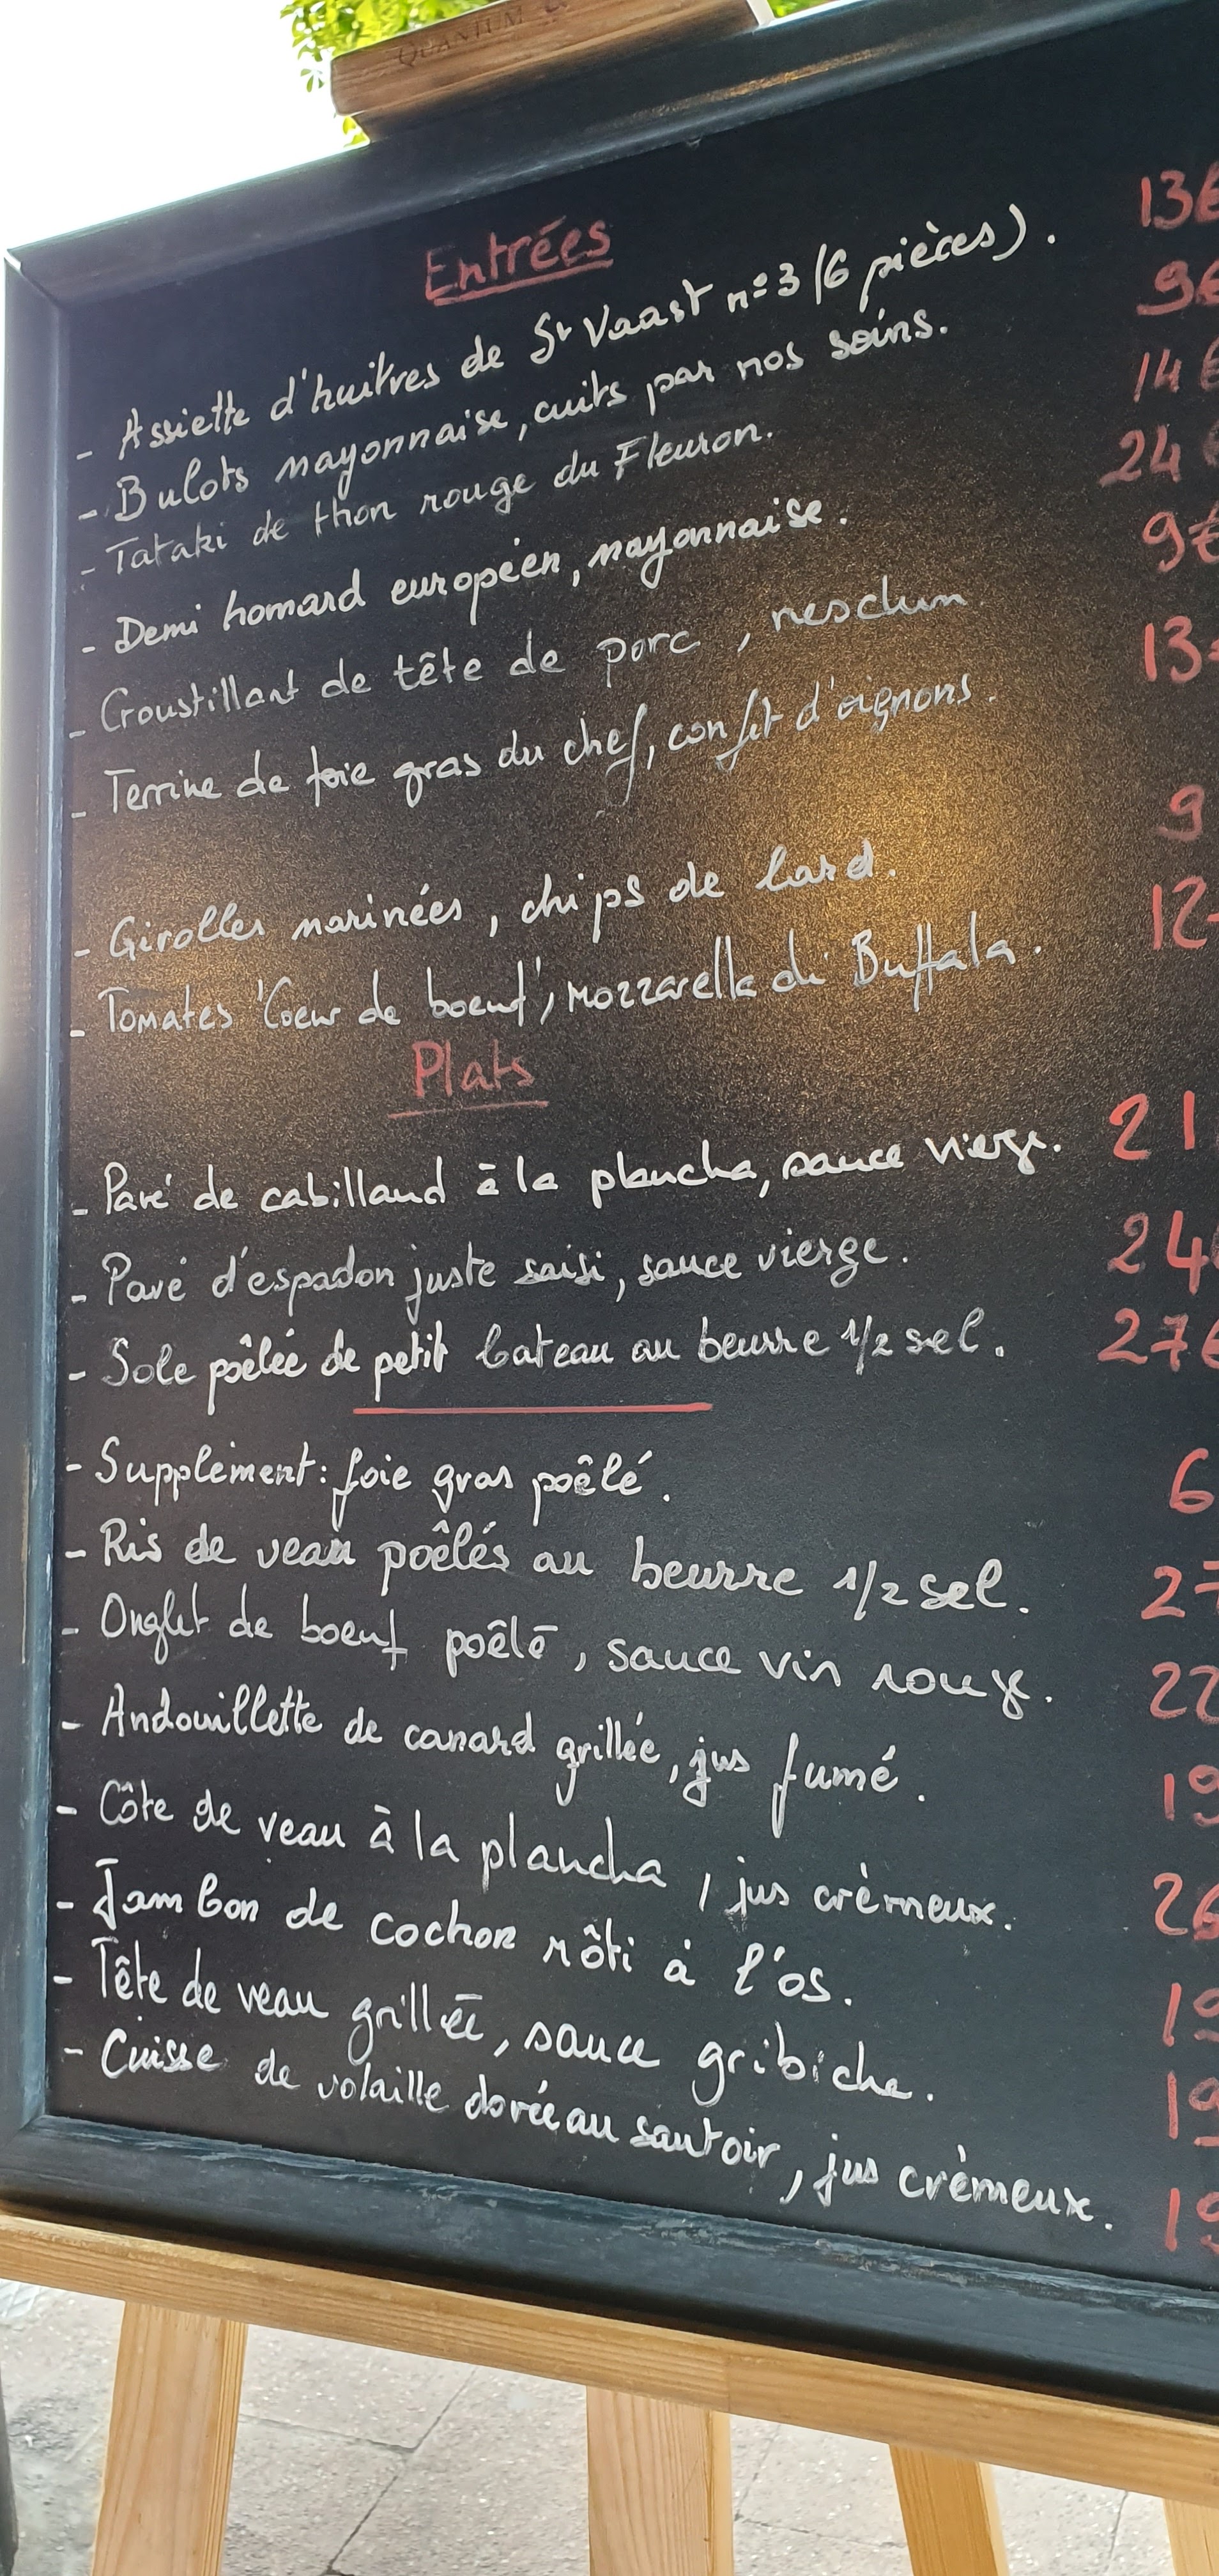 QUANTUM
Entrées
- Assiette d'huitres de St Vaast n°3 (6 pièces). 13€
- Bulots mayonnaise, cuits par nos soins. 9€
- Tataki de thon rouge du Fleuron. 14€
- Demi homard européen, mayonnaise. 24€
- Croustillant de tête de porc, 9€
- Terrine de foie gras du chef, confit d'oignons. 13
- Girolles marinées, chips de lard. 9
- Tomates "Coeur de boeuf", Mozzarella di Buffala. 12
Plats
- Pavé de cabillaud à la plancha, sauce vierge. 21
- Pavé d'espadon juste saisi, sauce vierge. 24
- Sole poêlée de petit bateau au beurre 1/2 sel. 27€
- Supplément: foie gras poêlé. 6
- Ris de veau poêlés au beurre 1/2 sel. 27
- Onglet de boeuf poêlé, sauce vin rouge. 22
- Andouillette de canard grillée, jus fumé. 19
- Côte de veau à la plancha, jus crèmeux. 26
- Jambon de cochon rôti à l'os. 19
- Tête de veau grillée, sauce gribiche. 19
- Cuisse de volaille dorée au sautoir, jus crèmeux. 19